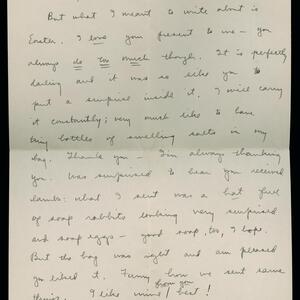 But what I meant to write about is
Easter. I love your present to me - you
always do too much though. It is perfectly
darling and it was so like you to
put a surprise inside it. I will carry
it constantly; very much like to have
tiny bottles of smelling salts in my
bag. Thank you - I'm always thanking
you. Was surprised to hear you received
lambs: what I sent was a hat full
of soap rabbits looking very surprised
and soap eggs - good soap, too, I hope.
But the bag was right and am pleased
you liked it. Funny how we sent same
from you
things. I like mine best!